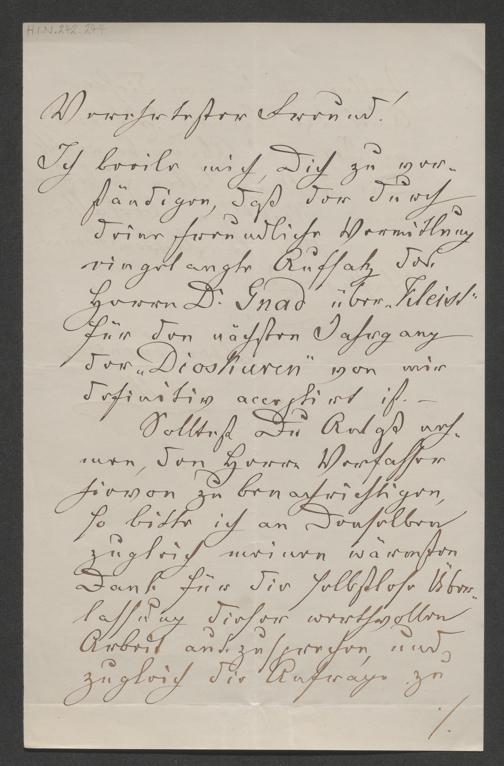 H.I.N. 242.244
Verehrtester Freund!
Ich beeile mich, Dich zu ver-
ständigen, daß der durch
Deine freundliche Vermittlung
eingelangte Aufsatz des
Herrn Dr. Gnad über „Kleist"
für den nächsten Jahrgang
der „Dioskuren" von mir
definitiv acceptirt ist. –
Solltest Du Anlaß neh-
men, den Herrn Verfasser
hievon zu benachrichtigen,
so bitte ich an Denselben
zugleich meinen wärmsten
Dank für die selbstlose Über-
lassung dieser werthvollen
Arbeit auszusprechen, und
zugleich die Anfrage zu
./.